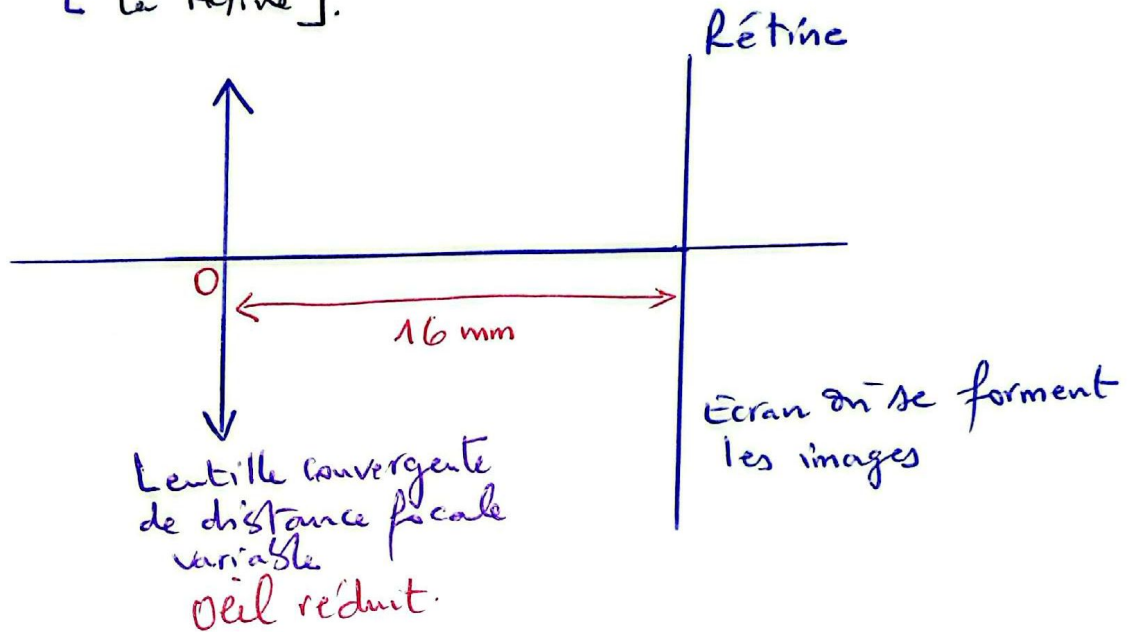 [ la rétine ].
Rétine
O
16 mm
Ecran où se forment
les images
Lentille convergente
de distance focale
variable
Oeil réduit.